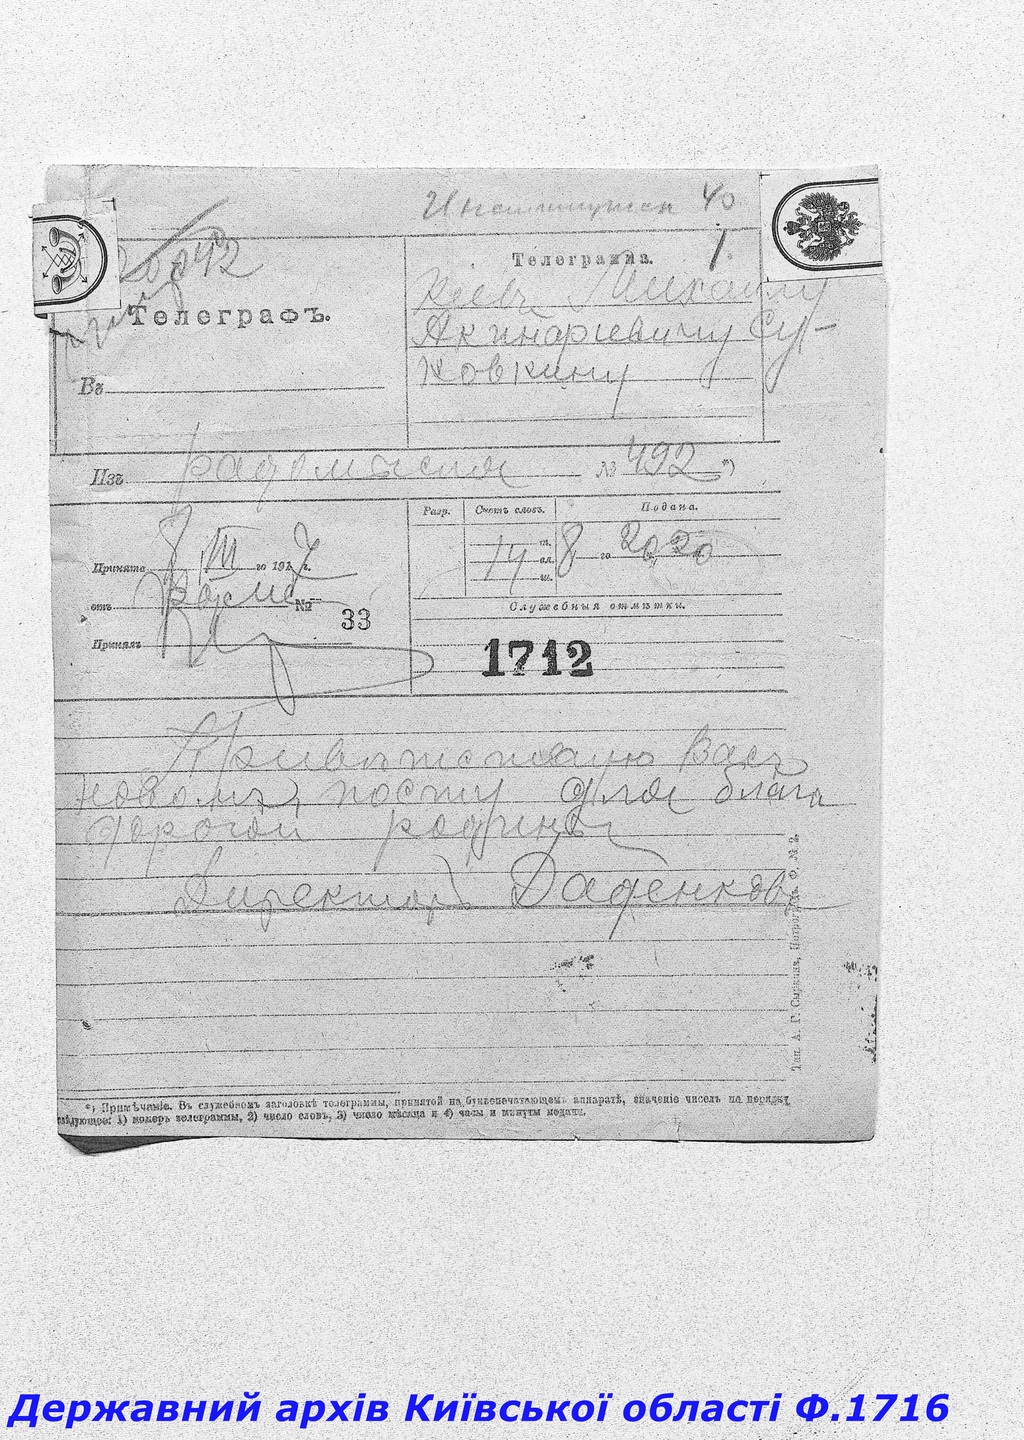 Институтская 40
20042
Телеграфъ.
Въ
Телеграмма. 1.
Кіевъ Михаилу
Акинфіевичу Су-
ковкину
Изъ Радомысля № 492 *)
Принята 8 III го 1917 г.
отъ Радмс № 33
Принялъ
Разр. Счетъ словъ. Подана.
14 сл. 8 го 20 20
ч.
Служебныя отмѣтки.
1712
Привѣтствую Васъ
новомъ посту для блага
дорогой родины
Директоръ Даденковъ
Тип. А. Г. Сыркина, Петроградъ. О. № 2.
*) Примѣчаніе. Въ служебномъ заголовкѣ телеграммы, принятой на буквопечатающемъ аппаратѣ, значеніе чиселъ по порядку
слѣдующее: 1) номеръ телеграммы, 2) число словъ, 3) число мѣсяца и 4) часы и минуты подачи.
Державний архів Київської області Ф.1716